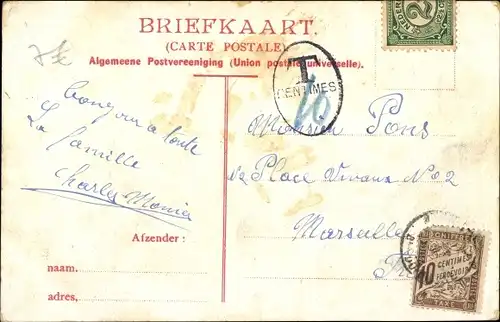 BRIEFKAART.
(CARTE POSTALE)
Algemeene Postvereeniging (Union postale universelle).
T
CENTIMES
10
Bonjour a toute
La famille
Charles
Monsieur Pons
Place Vivaux No 2
Marseille
Afzender:
naam.
adres,
10
CENTIMES
A PERCEVOIR
TAXE